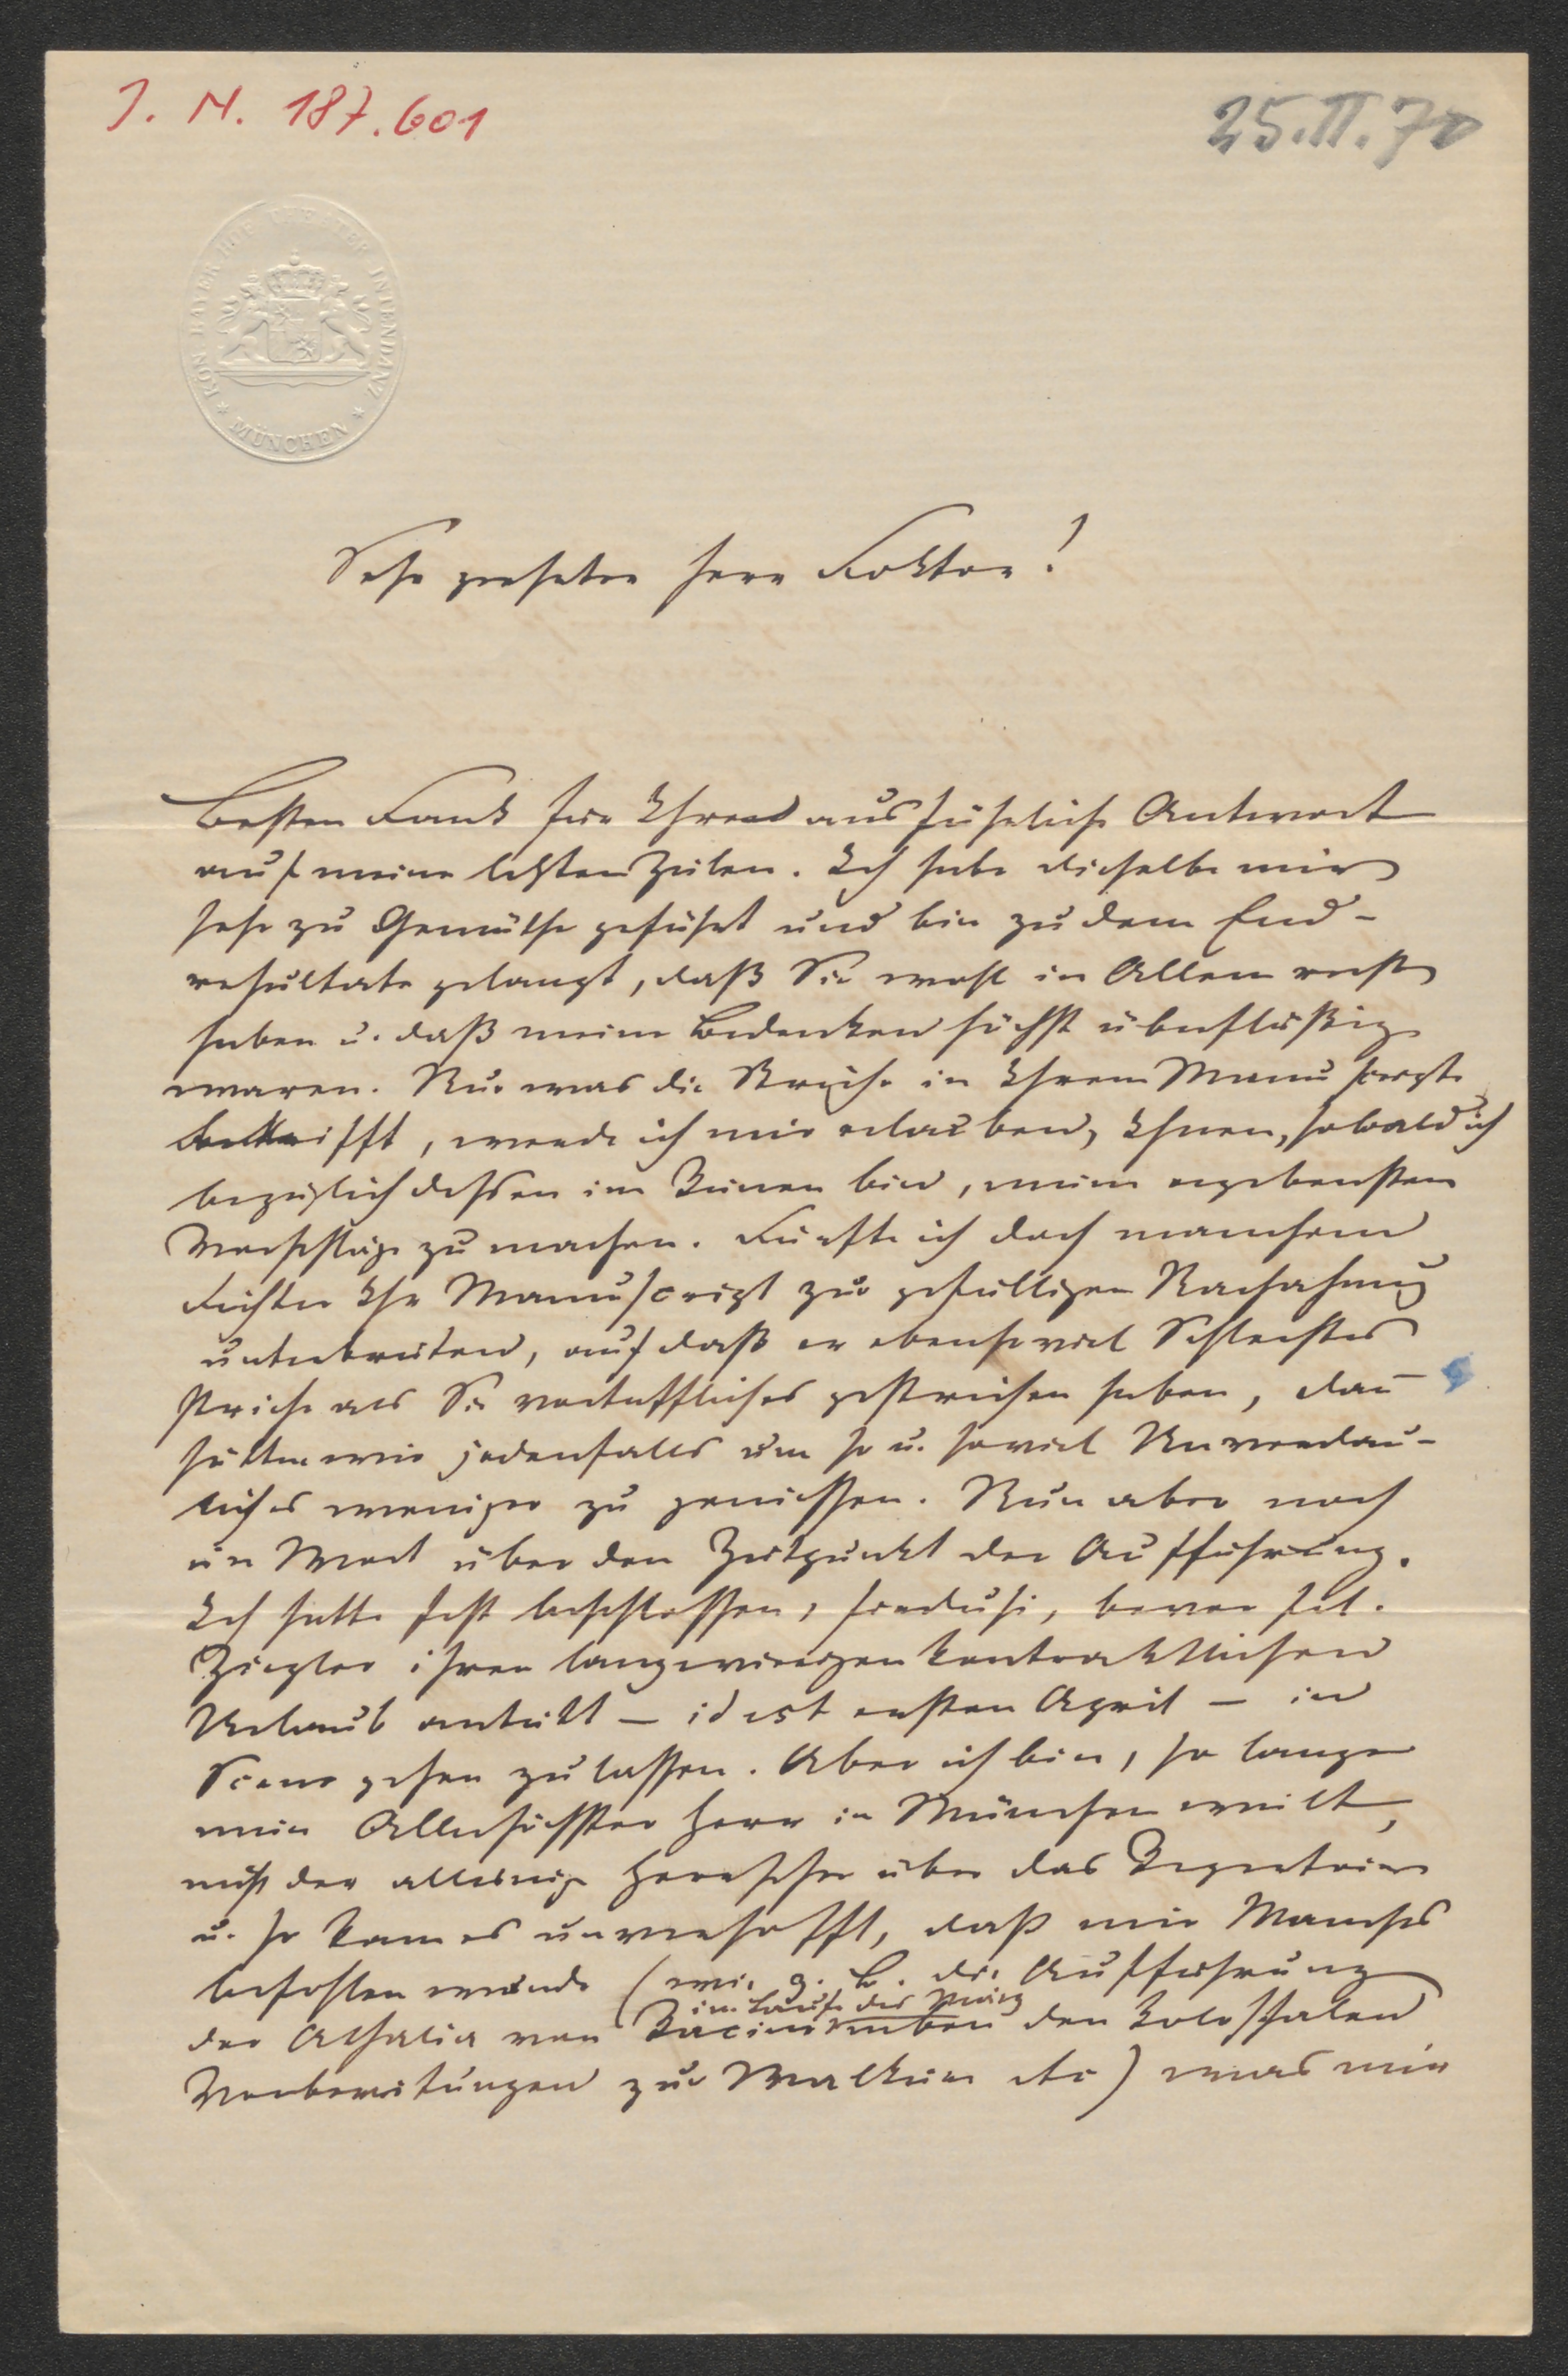 J. N. 187.601
25.II.70
KÖN BAYER HOF THEATER INTENDANZ
* MÜNCHEN *
Sehr geehrter Herr Doktor!
Besten Dank für Ihre ausführliche Antwort
auf meine letzten Zeilen. Ich habe dieselbe mir
sehr zu Gemüthe geführt und bin zu dem End-
resultate gelangt, daß Sie wohl in Allem recht
haben u. daß meine Bedenken höchst überflüßig
waren. Nur was die Striche in Ihrem Manuscripte
betrifft, werde ich mir erlauben, Ihnen, sobald ich
bezüglich dessen im Reinen bin, meine ergebensten
Vorschläge zu machen. Dürfte ich doch manchem
Dichter Ihr Manuscript zur gefälligen Nachahmung
unterbreiten, auf daß er ebensoviel Schlechtes
striche als Sie vortreffliches gestrichen haben, dan̄
hätten wir jedenfalls um so u. soviel Unverdau-
liches weniger zu geniessen. Nun aber noch
ein Wort über den Zeitpunkt der Aufführung.
Ich hatte fest beschlossen, bevor Frl.
Ziegler ihren langwierigen kontraktlichen
Urlaub antritt – id est ersten April – in
Scene gehen zu lassen. Aber ich bin, so lange
mein Allerhöchster Herr in München weilt,
nicht der alleinige Herrscher über das Repertoire
u. so kam es unverhofft, daß mir Manches
befohlen wurde (wie z. B. die Aufführung
im Laufe des März
der Athalia von Racine neben den kolossalen
Vorbereitungen zur Walküre etc) was mir